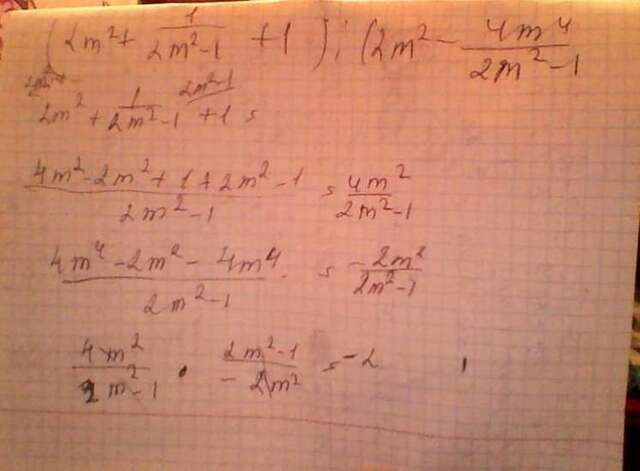 (2m² + 1/(2m²-1) + 1) : (2m² - 4m⁴/(2m²-1)
2m² + 1/(2m²-1) + 1 =
(4m² - 2m² + 1 + 2m² - 1)/(2m²-1) = 4m²/(2m²-1)
(4m⁴ - 2m² - 4m⁴)/(2m²-1) = -2m²/(2m²-1)
4m²/(2m²-1) · (2m²-1)/(-2m²) = -2